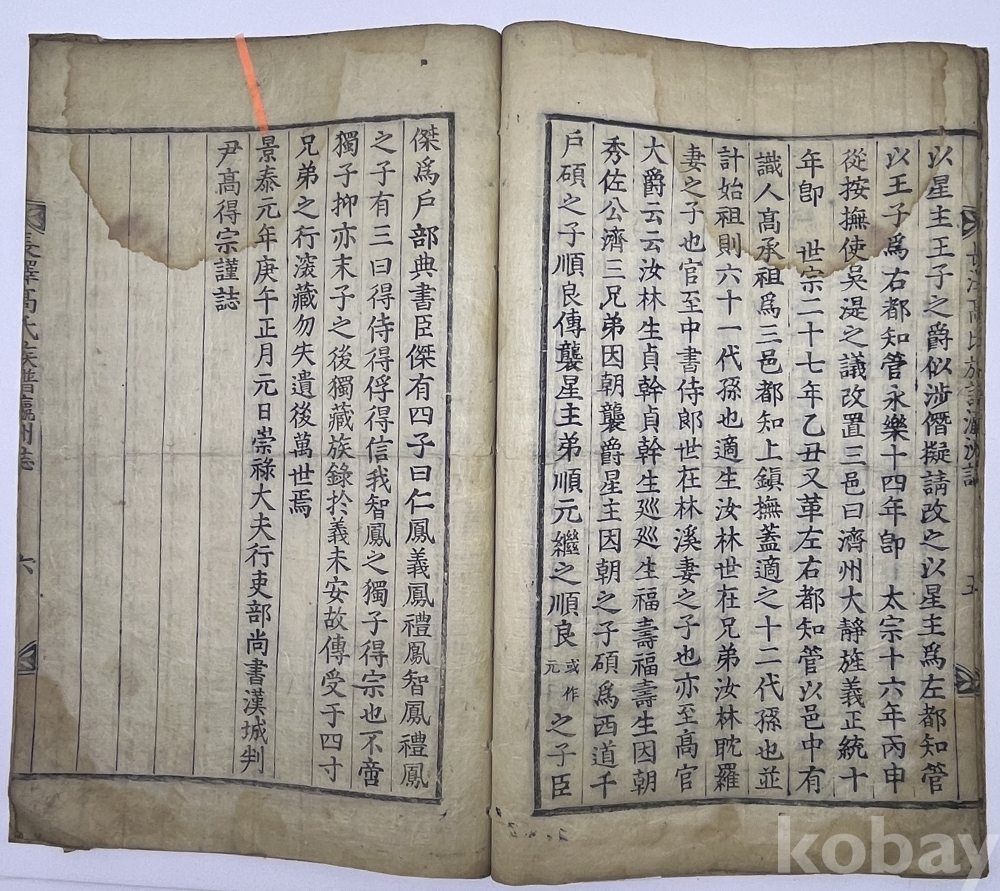 以星主王子之爵似涉僭擬請改之以星主爲左都知管
以王子爲右都知管永樂十四年卽 太宗十六年丙申
從按撫使吳湜之議改置三邑曰濟州大靜旌義正統十
年卽 世宗二十七年乙丑又革左右都知管以邑中有
識人髙承祖爲三邑都知上鎭撫蓋適之十二代孫也並
計始祖則六十一代孫也適生汝林世在兄弟汝林眈羅
妻之子也官至中書侍郎世在林溪妻之子也亦至髙官
大爵云云汝林生貞幹貞幹生廵廵生福壽福壽生因朝
秀佐公濟三兄弟因朝襲爵星主因朝之子碩爲西道千
戶碩之子順良傳襲星主弟順元繼之順良或作元之子臣
五
傑爲戶部典書臣傑有四子曰仁鳳義鳳禮鳳智鳳禮鳳
之子有三曰得侍得俘得信我智鳳之獨子得宗也不啻
獨子抑亦末子之後獨藏族錄扵義未安故傳受于四寸
兄弟之行滾藏勿失遺後萬世焉
景泰元年庚午正月元日崇祿大夫行吏部尚書漢城判
尹高得宗謹誌
長澤高氏族譜瀛州誌
六
kobay